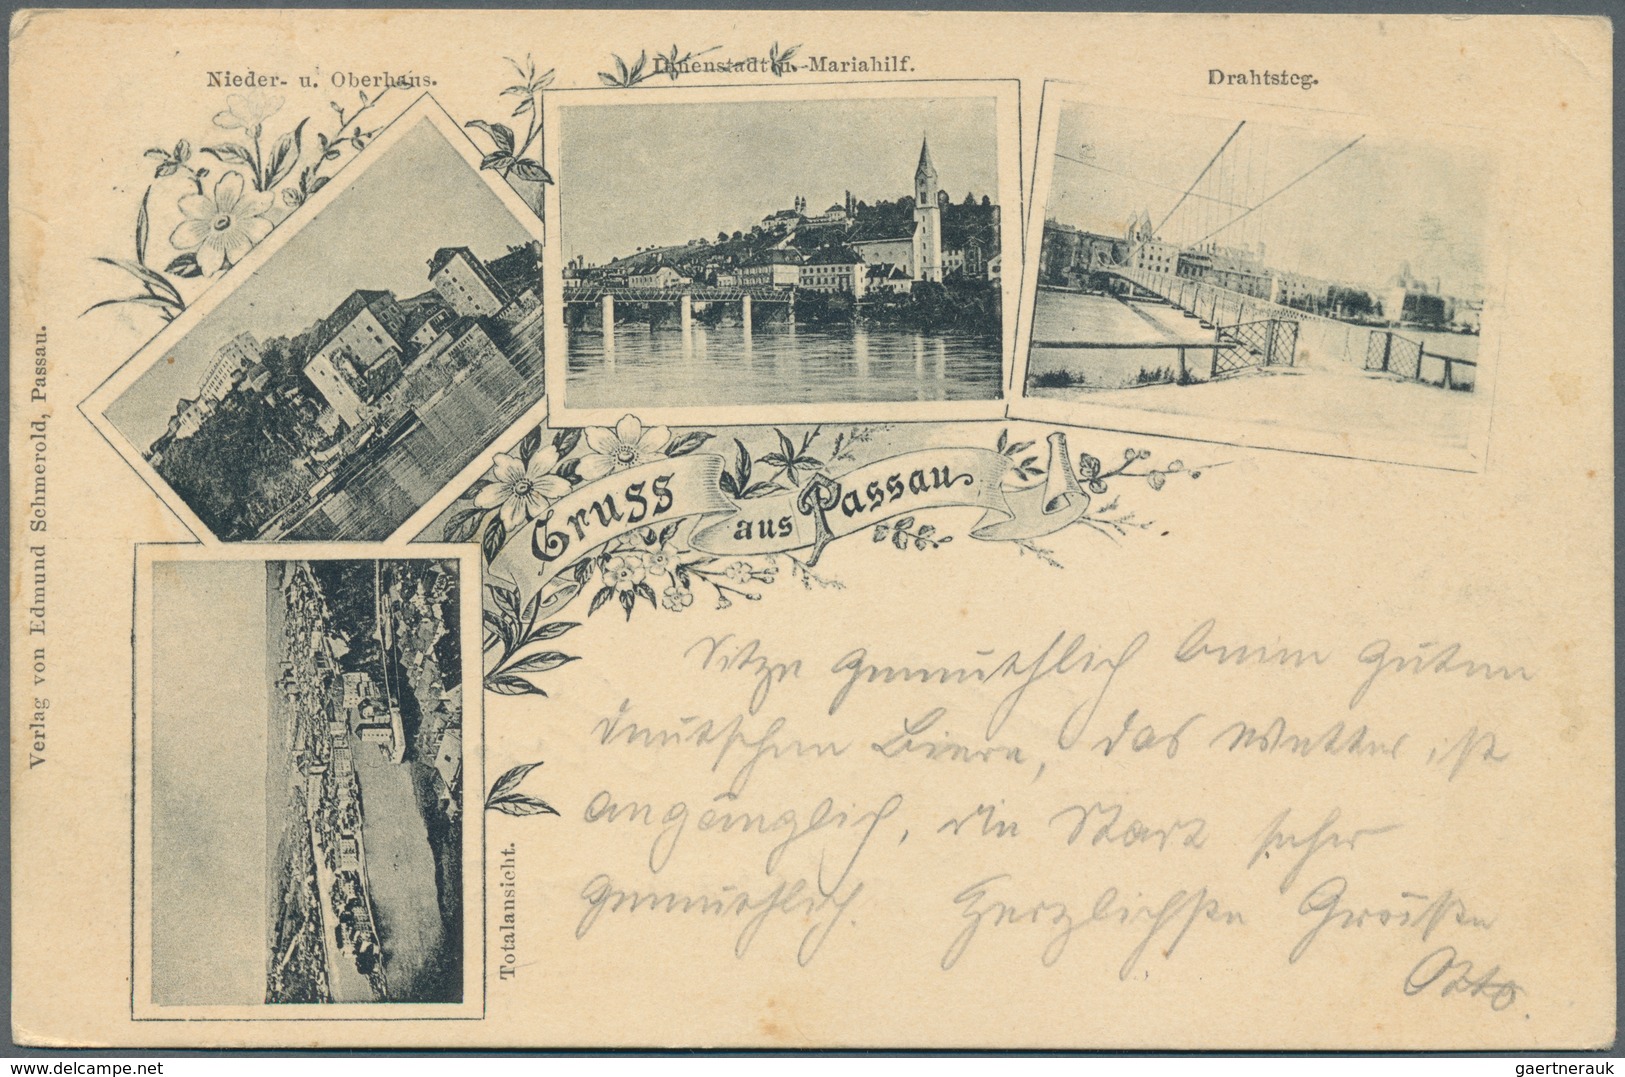 Nieder- u. Oberhaus.
Innenstadt u. Mariahilf.
Drahtsteg.
Verlag von Edmund Schmerold, Passau.
Gruss aus Passau.
Totalansicht.
Sitze gemüthlich beim guten
deutschen Biere, das Wetter ist
angänglich, die Stadt sehr
gemüthlich. Herzlichste Grüße
Otto.
gaertnerauk